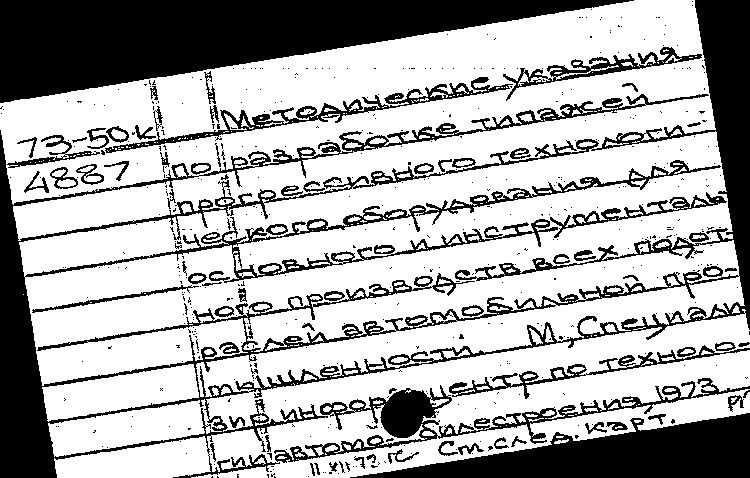 73-50к
4887
Методические указания
по разработке типажей
прогрессивного технологи-
ческого оборудования для
основного и инструменталь-
ного производств всех подот-
раслей автомобильной про-
мышленности. М., Специали
зир. информ центр по техноло-
гии автомо- билестроения, 1973
11 XII 73 гс См. след. карт.